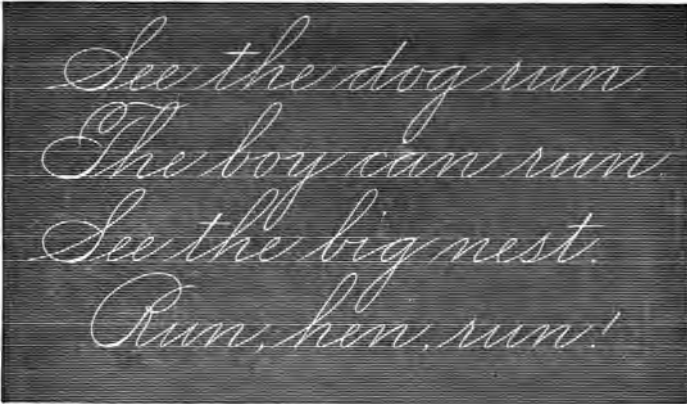 See the dog run.
The boy can run.
See the big nest.
Run, hen, run!